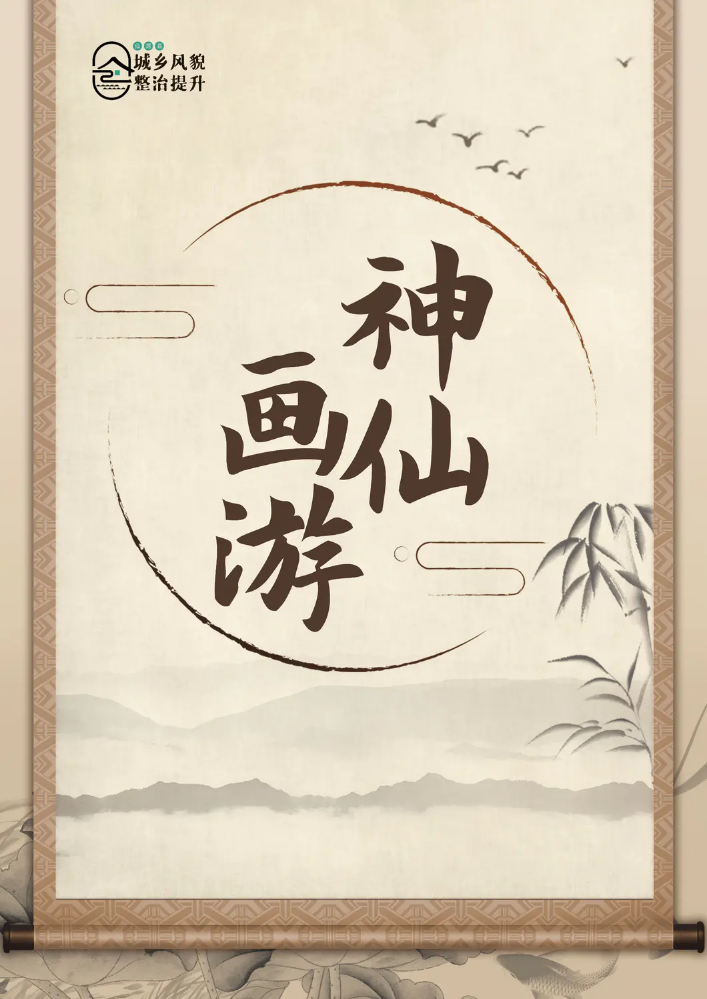 城乡风貌
整治提升
神仙
画游